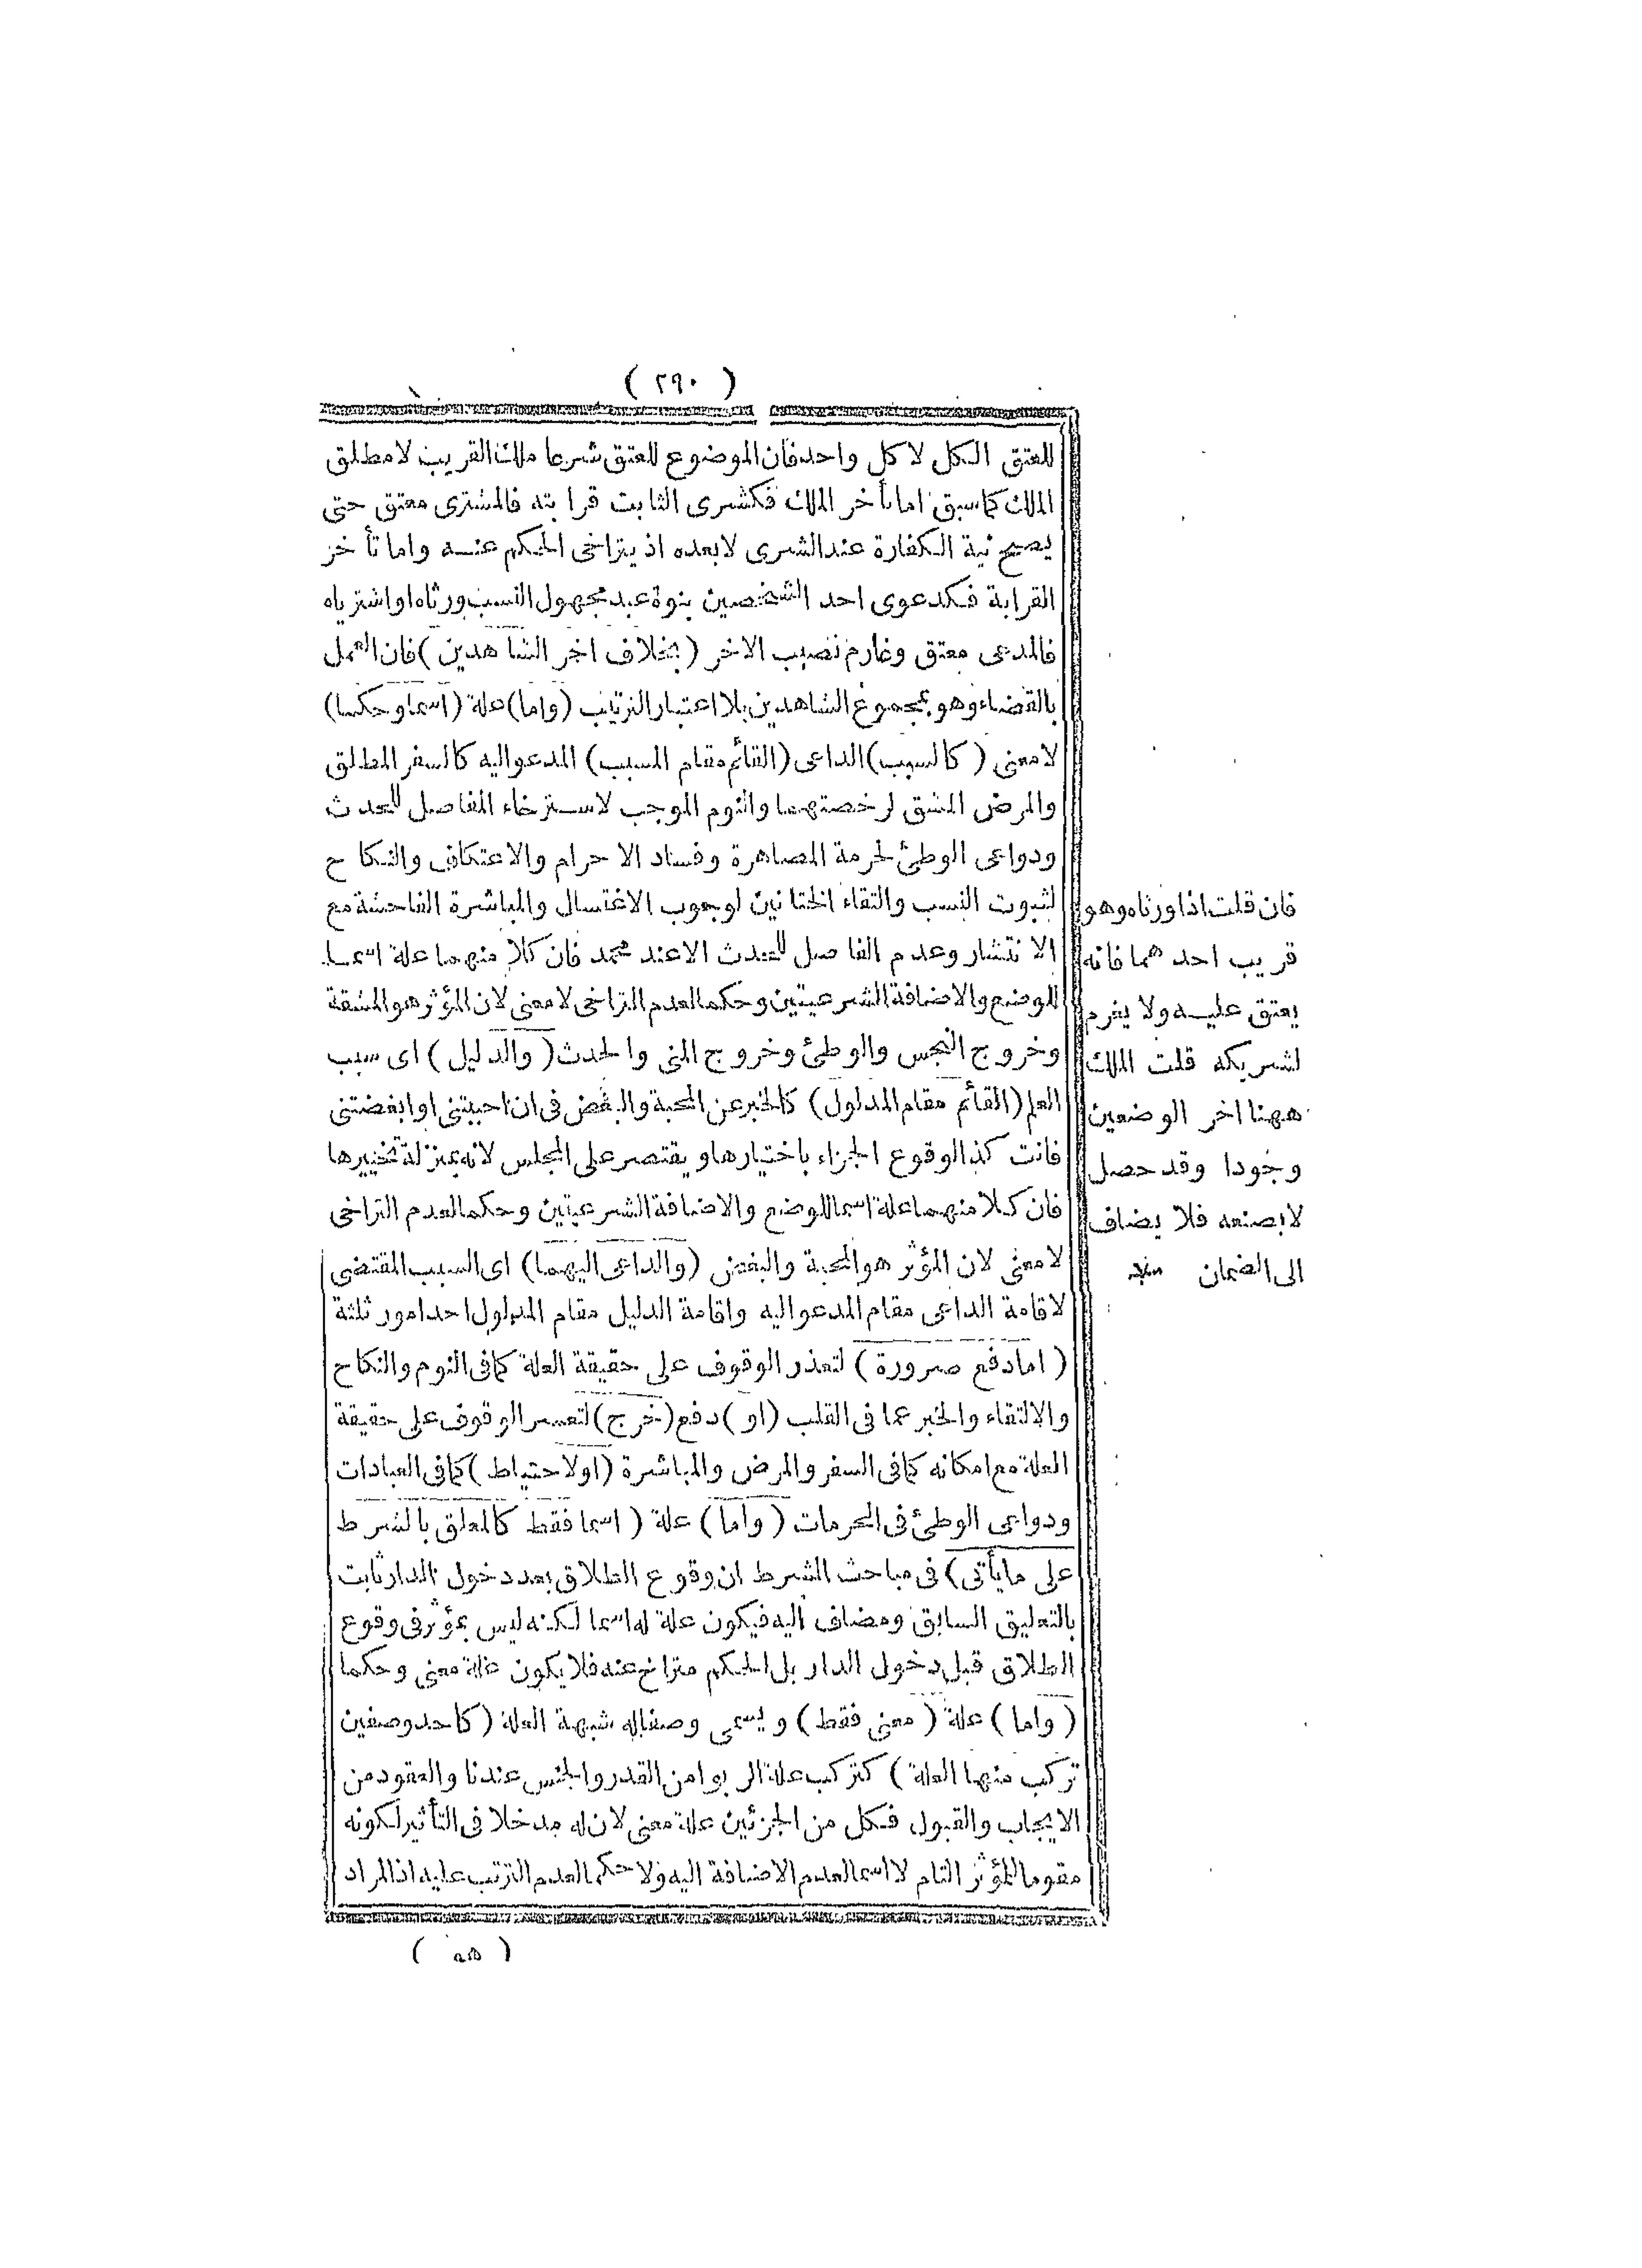 ( ٢٩٠ )
للعتق الكل لا كل واحد فان الموضوع للعتق شرعا ملك القريب لا مطلق
الملك كما سبق اما تأخر الملك فكشرى الثابت قرابته فالمشترى معتق حتى
يصح نية الكفارة عند الشرى لا بعده اذ يتراخى الحكم عنه واما تأخر
القرابة فكدعوى احد الشخصين بنوة عبد مجهول النسب ورثاه او اشترياه
فالمدعى معتق وغارم نصيب الاخر ( بخلاف اخر الشاهدين ) فان العمل
بالقضاء وهو بمجموع الشاهدين بلا اعتبار الترتيب ( واما ) علة ( اسما وحكما )
لا معنى ( كالسبب ) الداعى ( القائم مقام المسبب ) المدعو اليه كالسفر المطلق
والمرض المشق لرخصتهما والنوم الموجب لاسترخاء المفاصل للحدث
ودواعى الوطئ لحرمة المصاهرة وفساد الاحرام والاعتكاف والنكاح
لثبوت النسب والتقاء الختانين لوجوب الاغتسال والمباشرة الفاحشة مع
الانتشار وعدم الفاصل للحدث الا عند محمد فان كلا منهما علة اسما
للوضع والاضافة الشرعيتين وحكما لعدم التراخى لا معنى لان المؤثر هو المشقة
وخروج النجس والوطئ وخروج المنى والحدث ( والدليل ) اى سبب
العلم ( القائم مقام المدلول ) كالخبر عن المحبة والبغض فى ان احببتنى او ابغضتنى
فانت كذا لوقوع الجزاء باختيارها ويقتصر على المجلس لانه بمنزلة تخييرها
فان كلا منهما علة اسما للوضع والاضافة الشرعيتين وحكما لعدم التراخى
لا معنى لان المؤثر هو المحبة والبغض ( والداعى اليهما ) اى السبب المقتضى
لاقامة الداعى مقام المدعو اليه واقامة الدليل مقام المدلول احد امور ثلثة
( اما دفع ضرورة ) لتعذر الوقوف على حقيقة العلة كما فى النوم والنكاح
والالتقاء والخبر عما فى القلب ( او ) دفع ( حرج ) لتعسر الوقوف على حقيقة
العلة مع امكانه كما فى السفر والمرض والمباشرة ( او لاحتياط ) كما فى العبادات
ودواعى الوطئ فى المحرمات ( واما ) علة ( اسما فقط كالمعلق بالشرط
على ما يأتى ) فى مباحث الشرط ان وقوع الطلاق بعد دخول الدار ثابت
بالتعليق السابق ومضاف اليه فيكون علة له اسما لكنه ليس بمؤثر فى وقوع
الطلاق قبل دخول الدار بل الحكم متراخ عنه فلا يكون علة معنى وحكما
( واما ) علة ( معنى فقط ) ويسمى وصفا له شبهة العلة ( كاحد وصفين
تركب منهما العلة ) كتركب علة الربوا من القدر والجنس عندنا والعقود من
الايجاب والقبول فكل من الجزئين علة معنى لان له مدخلا فى التأثير لكونه
مقوما للمؤثر التام لا اسما لعدم الاضافة اليه ولا حكما لعدم الترتب عليه اذ المراد
( هه )
فان قلت اذا ورثاه وهو
قريب احدهما فانه
يعتق عليه ولا يغرم
لشريكه قلت الملك
ههنا اخر الوضعين
وجودا وقد حصل
لا بصنعه فلا يضاف
الى الضمان منه